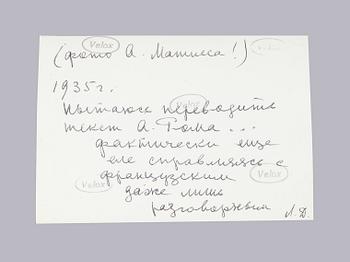 (фото А. Матисса!)
1935 г.
Пытаюсь переводить
текст А. Рома...
фактически еще
еле справляясь с
французским
даже лишь
разговорным
Л. Д.
Velox
Velox
Velox
Velox
Velox